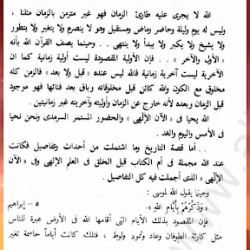 الله لا يجرى عليه طارئ الزمان فهو غير متزمن بالزمان مثلنا ,
وليس له يوم وليلة وحاضر وماض ومستقبل وهو لا ينصرم ولا يتغير ولا يتطور
ولا يشيخ ولا يكبر ولا يبدأ ولا ينتهى .. وحينما يصف القرآن الله بأنه
« الأول والآخر » .. فإن الأولية المقصودة ليست أولية زمانية كما ان
الآخرية ليست آخرية زمانية فالله ليس عنده ( قبل ولا بعد ) فالزمن كله
مخلوق مع الكون والله كائن قبل مخلوقاته وباق بعد فنائها فهو موجود
قبل الزمان وبعده لأنه خارج عن الزمان وأوليته وآخريته غير زمانيتين .
الله يحيا فى « الآن الإلهى » والحضور المستمر السرمدى ونحن نحيا
فى الأمس واليوم والغد .
أما قصة التاريخ وما اشتملت من أحداث وتفاصيل فكانت
عند الله مجملة فى أم الكتاب قبل الخلق فى العلم الإلهى وفى « الآن
الإلهى » الذى أجملت فيه كل التفاصيل .
وحينما يقول الله لموسى :
« وذكرهم بأيام الله » ٥ - إبراهيم
فإن المقصود بذلك الأيام التى أقامها الله فى الأرض عبرة للناس
مثل كارثة الطوفان وعاد وثمود ولوط , فتلك كانت أياماً حاسمة تغير